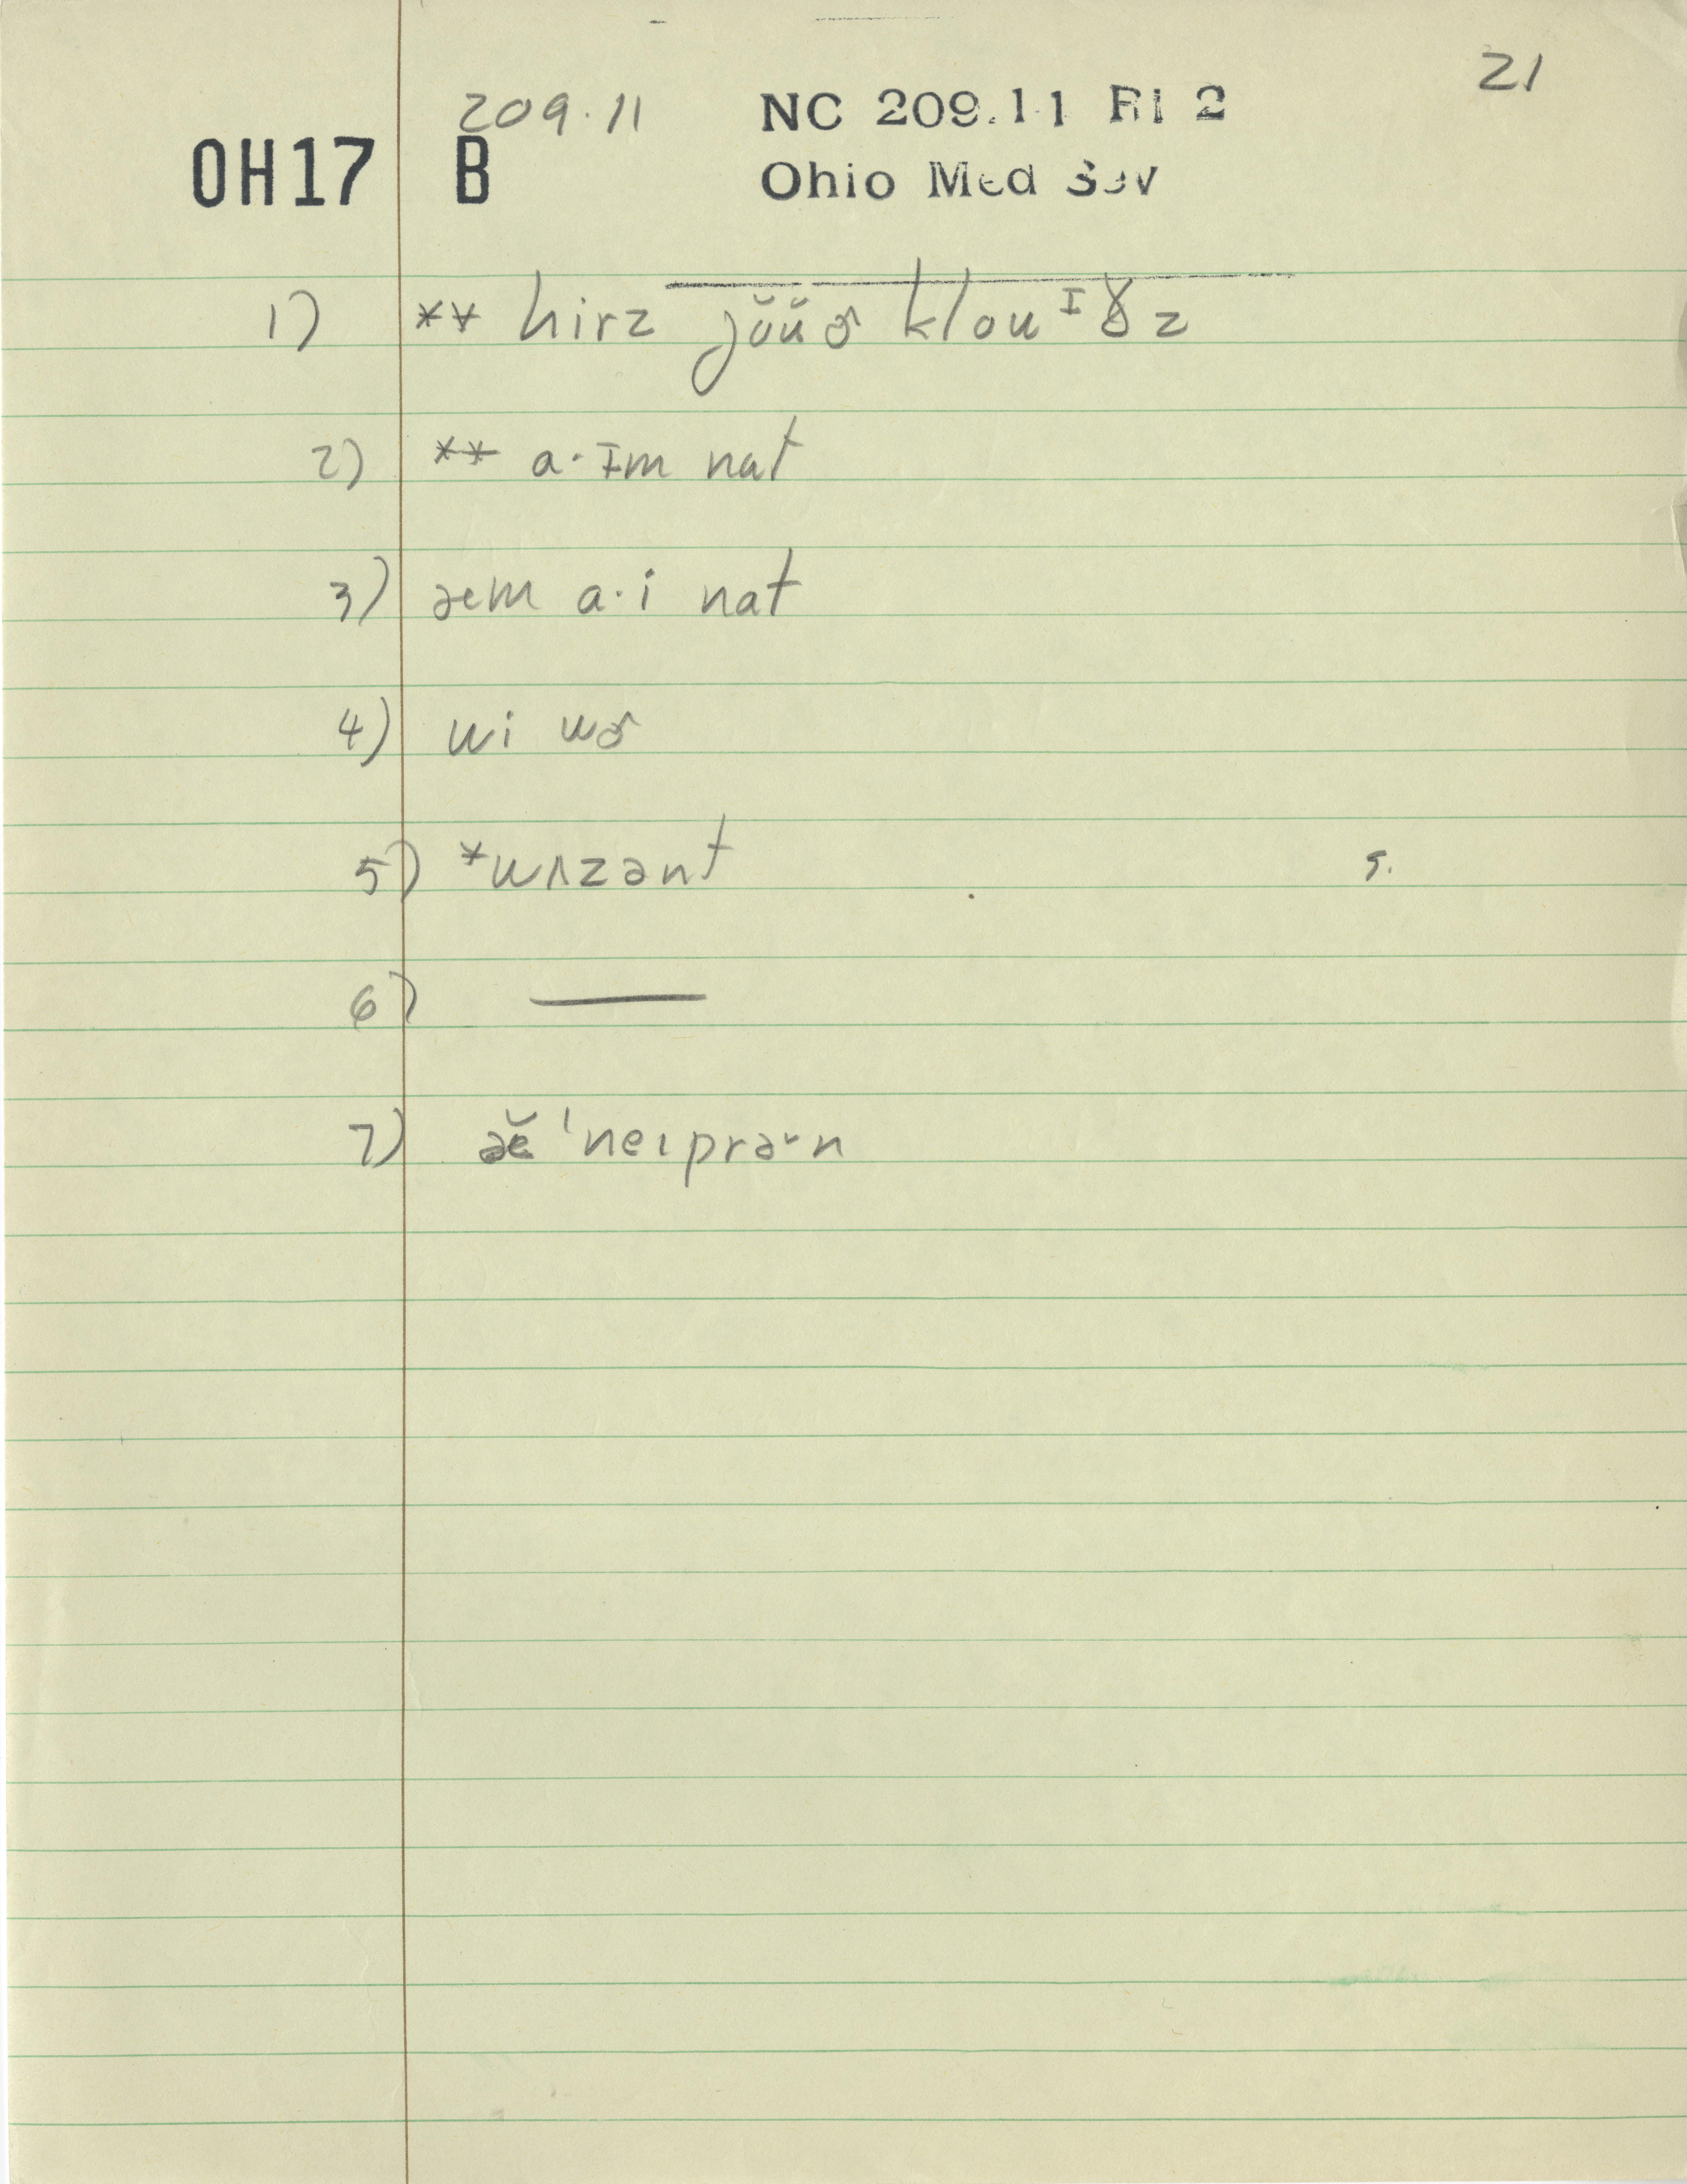 21
209.11 NC 209.11 RI 2
OH17 B Ohio Med Sov
1) ** hirz jŏŭɚ klouᴵðz
2) ** a·ɪm nat
3) æm a·i nat
4) wi wɚ
5) *wʌzənt 5.
6) —
7) æ̆ 'neɪprə˘n